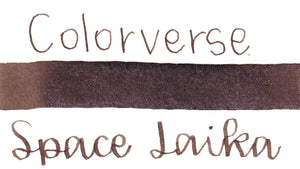 Colorverse
Space Laika